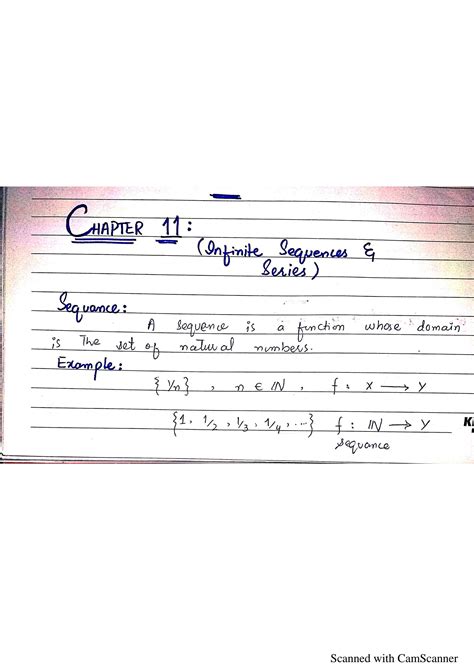 CHAPTER 11:
(Infinite Sequences &
Series)
Sequance:
A sequence is a function whose domain
is The set of natural numbers.
Example:
{1/n} , n ∈ IN , f : X → Y
{1, 1/2, 1/3, 1/4, ...} f : IN → Y
Sequance
Scanned with CamScanner